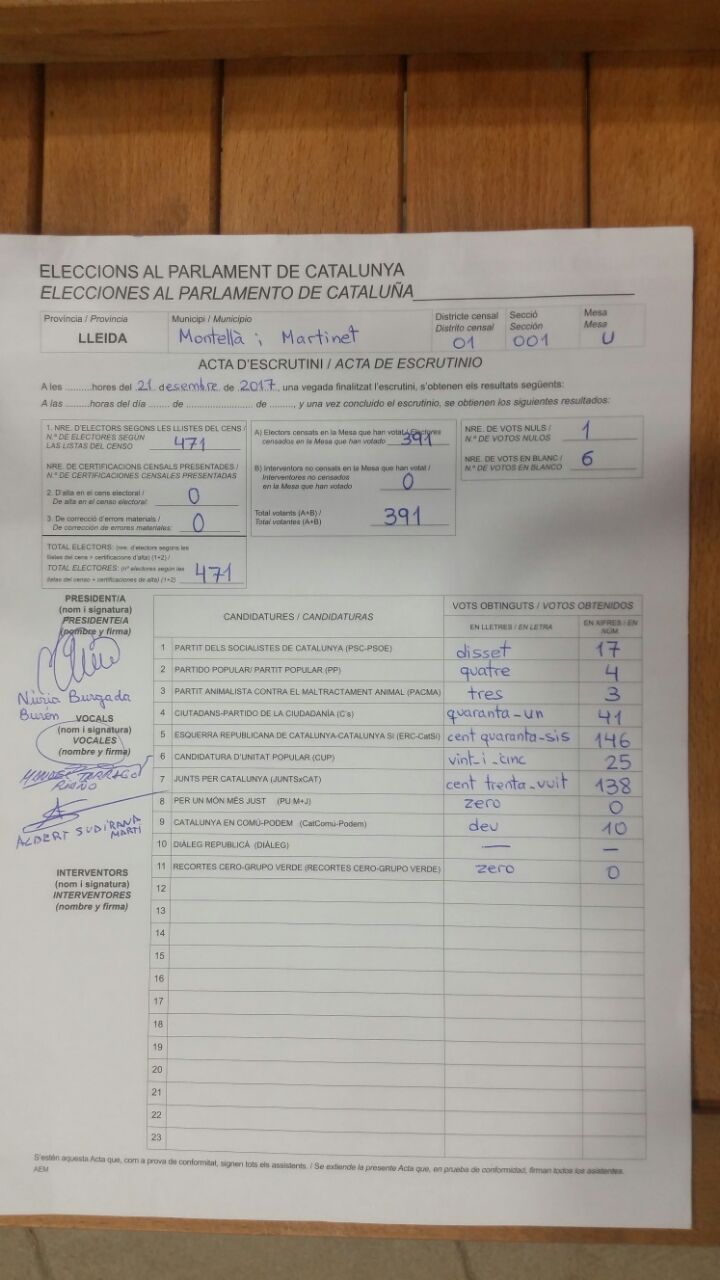 ELECCIONS AL PARLAMENT DE CATALUNYA
ELECCIONES AL PARLAMENTO DE CATALUÑA
Província / Provincia
LLEIDA
Municipi / Municipio
Montellà i Martinet
Districte censal
Distrito censal
01
Secció
Sección
001
Mesa
Mesa
U
ACTA D'ESCRUTINI / ACTA DE ESCRUTINIO
A les .........hores del 21 desembre de 2017, una vegada finalitzat l'escrutini, s'obtenen els resultats següents:
A las .........horas del día ....... de ...................... de ........, y una vez concluido el escrutinio, se obtienen los siguientes resultados:
1. NRE. D'ELECTORS SEGONS LES LLISTES DEL CENS /
N.º DE ELECTORES SEGÚN
LAS LISTAS DEL CENSO 471
NRE. DE CERTIFICACIONS CENSALS PRESENTADES /
N.º DE CERTIFICACIONES CENSALES PRESENTADAS
2. D'alta en el cens electoral /
De alta en el censo electoral: 0
3. De correcció d'errors materials /
De corrección de errores materiales: 0
TOTAL ELECTORS: (nre. d'electors segons les
llistes del cens + certificacions d'alta) (1+2) /
TOTAL ELECTORES: (nº electores según las
listas del censo + certificaciones de alta) (1+2) 471
A) Electors censats en la Mesa que han votat / Electores
censados en la Mesa que han votado 391
B) Interventors no censats en la Mesa que han votat /
Interventores no censados
en la Mesa que han votado 0
Total votants (A+B) /
Total votantes (A+B) 391
NRE. DE VOTS NULS /
N.º DE VOTOS NULOS 1
NRE. DE VOTS EN BLANC /
N.º DE VOTOS EN BLANCO 6
PRESIDENT/A
(nom i signatura)
PRESIDENTE/A
(nombre y firma)
Núria Burgada
Burón
VOCALS
(nom i signatura)
VOCALES
(nombre y firma)
ALBERT SUDIRANA
MARTÍ
INTERVENTORS
(nom i signatura)
INTERVENTORES
(nombre y firma)
CANDIDATURES / CANDIDATURAS
VOTS OBTINGUTS / VOTOS OBTENIDOS
EN LLETRES / EN LETRA
EN XIFRES / EN
NÚM
1 PARTIT DELS SOCIALISTES DE CATALUNYA (PSC-PSOE) disset 17
2 PARTIDO POPULAR/ PARTIT POPULAR (PP) quatre 4
3 PARTIT ANIMALISTA CONTRA EL MALTRACTAMENT ANIMAL (PACMA) tres 3
4 CIUTADANS-PARTIDO DE LA CIUDADANÍA (C's) quaranta-un 41
5 ESQUERRA REPUBLICANA DE CATALUNYA-CATALUNYA SÍ (ERC-CatSí) cent quaranta-sis 146
6 CANDIDATURA D'UNITAT POPULAR (CUP) vint-i-cinc 25
7 JUNTS PER CATALUNYA (JUNTSxCAT) cent trenta-vuit 138
8 PER UN MÓN MÉS JUST (PUM+J) zero 0
9 CATALUNYA EN COMÚ-PODEM (CatComú-Podem) deu 10
10 DIÀLEG REPUBLICÀ (DIÀLEG) — —
11 RECORTES CERO-GRUPO VERDE (RECORTES CERO-GRUPO VERDE) zero 0
12
13
14
15
16
17
18
19
20
21
22
23
S'estén aquesta Acta que, com a prova de conformitat, signen tots els assistents. / Se extiende la presente Acta que, en prueba de conformidad, firman todos los asistentes.
AEM